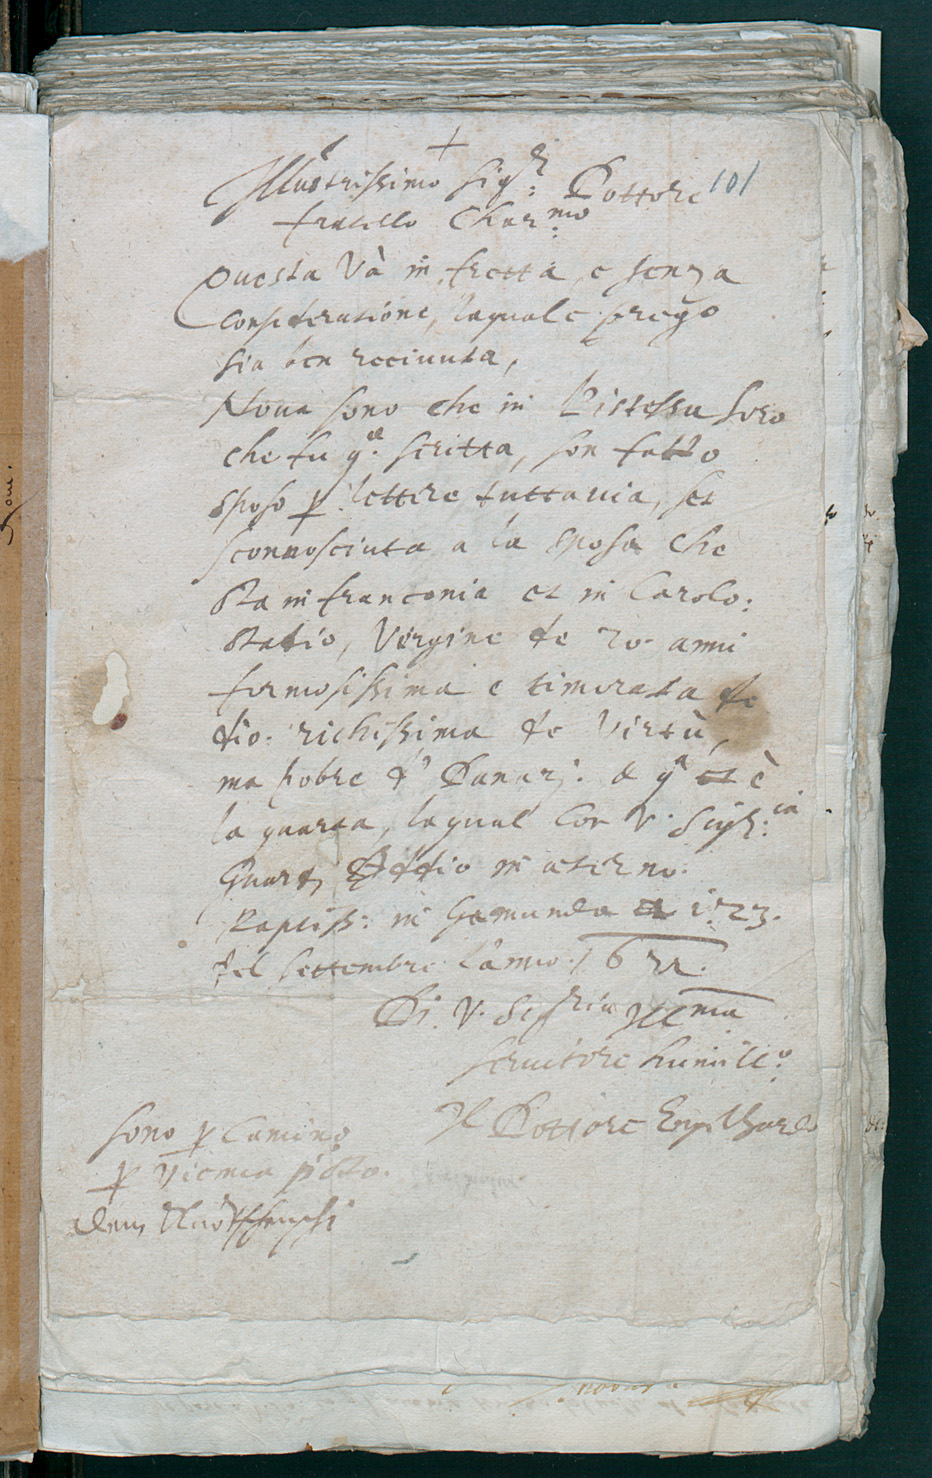 +
Illustrissimo Sig.r Dottore 101
fratello Char.mo
Questa Và in fretta, e senza
consideratione, laquale prego
sia ben receiuuta,
Noua sono che in l'istessa hora
che fu q.a scritta, son fatto
sposo p lettere tuttauia, et
sconnosciuta a la sposa che
sta in franconia et in Carolo:
stadio, Vergine de 20. anni
formosissima e timorata de
dio. richissima de Virtù,
ma pobre d' Danari. & q.a è
la quarta, laqual con V. Sig.ria
Guardi Iddio in aeterno.
Raptiss: in Gamunda 23.
del settembre l'anno. 1622.
Di. V. Sig.ria Ill.ma
seruitore humill.o
Il Dottore Engelhardo
sono p Camino
p Vienna